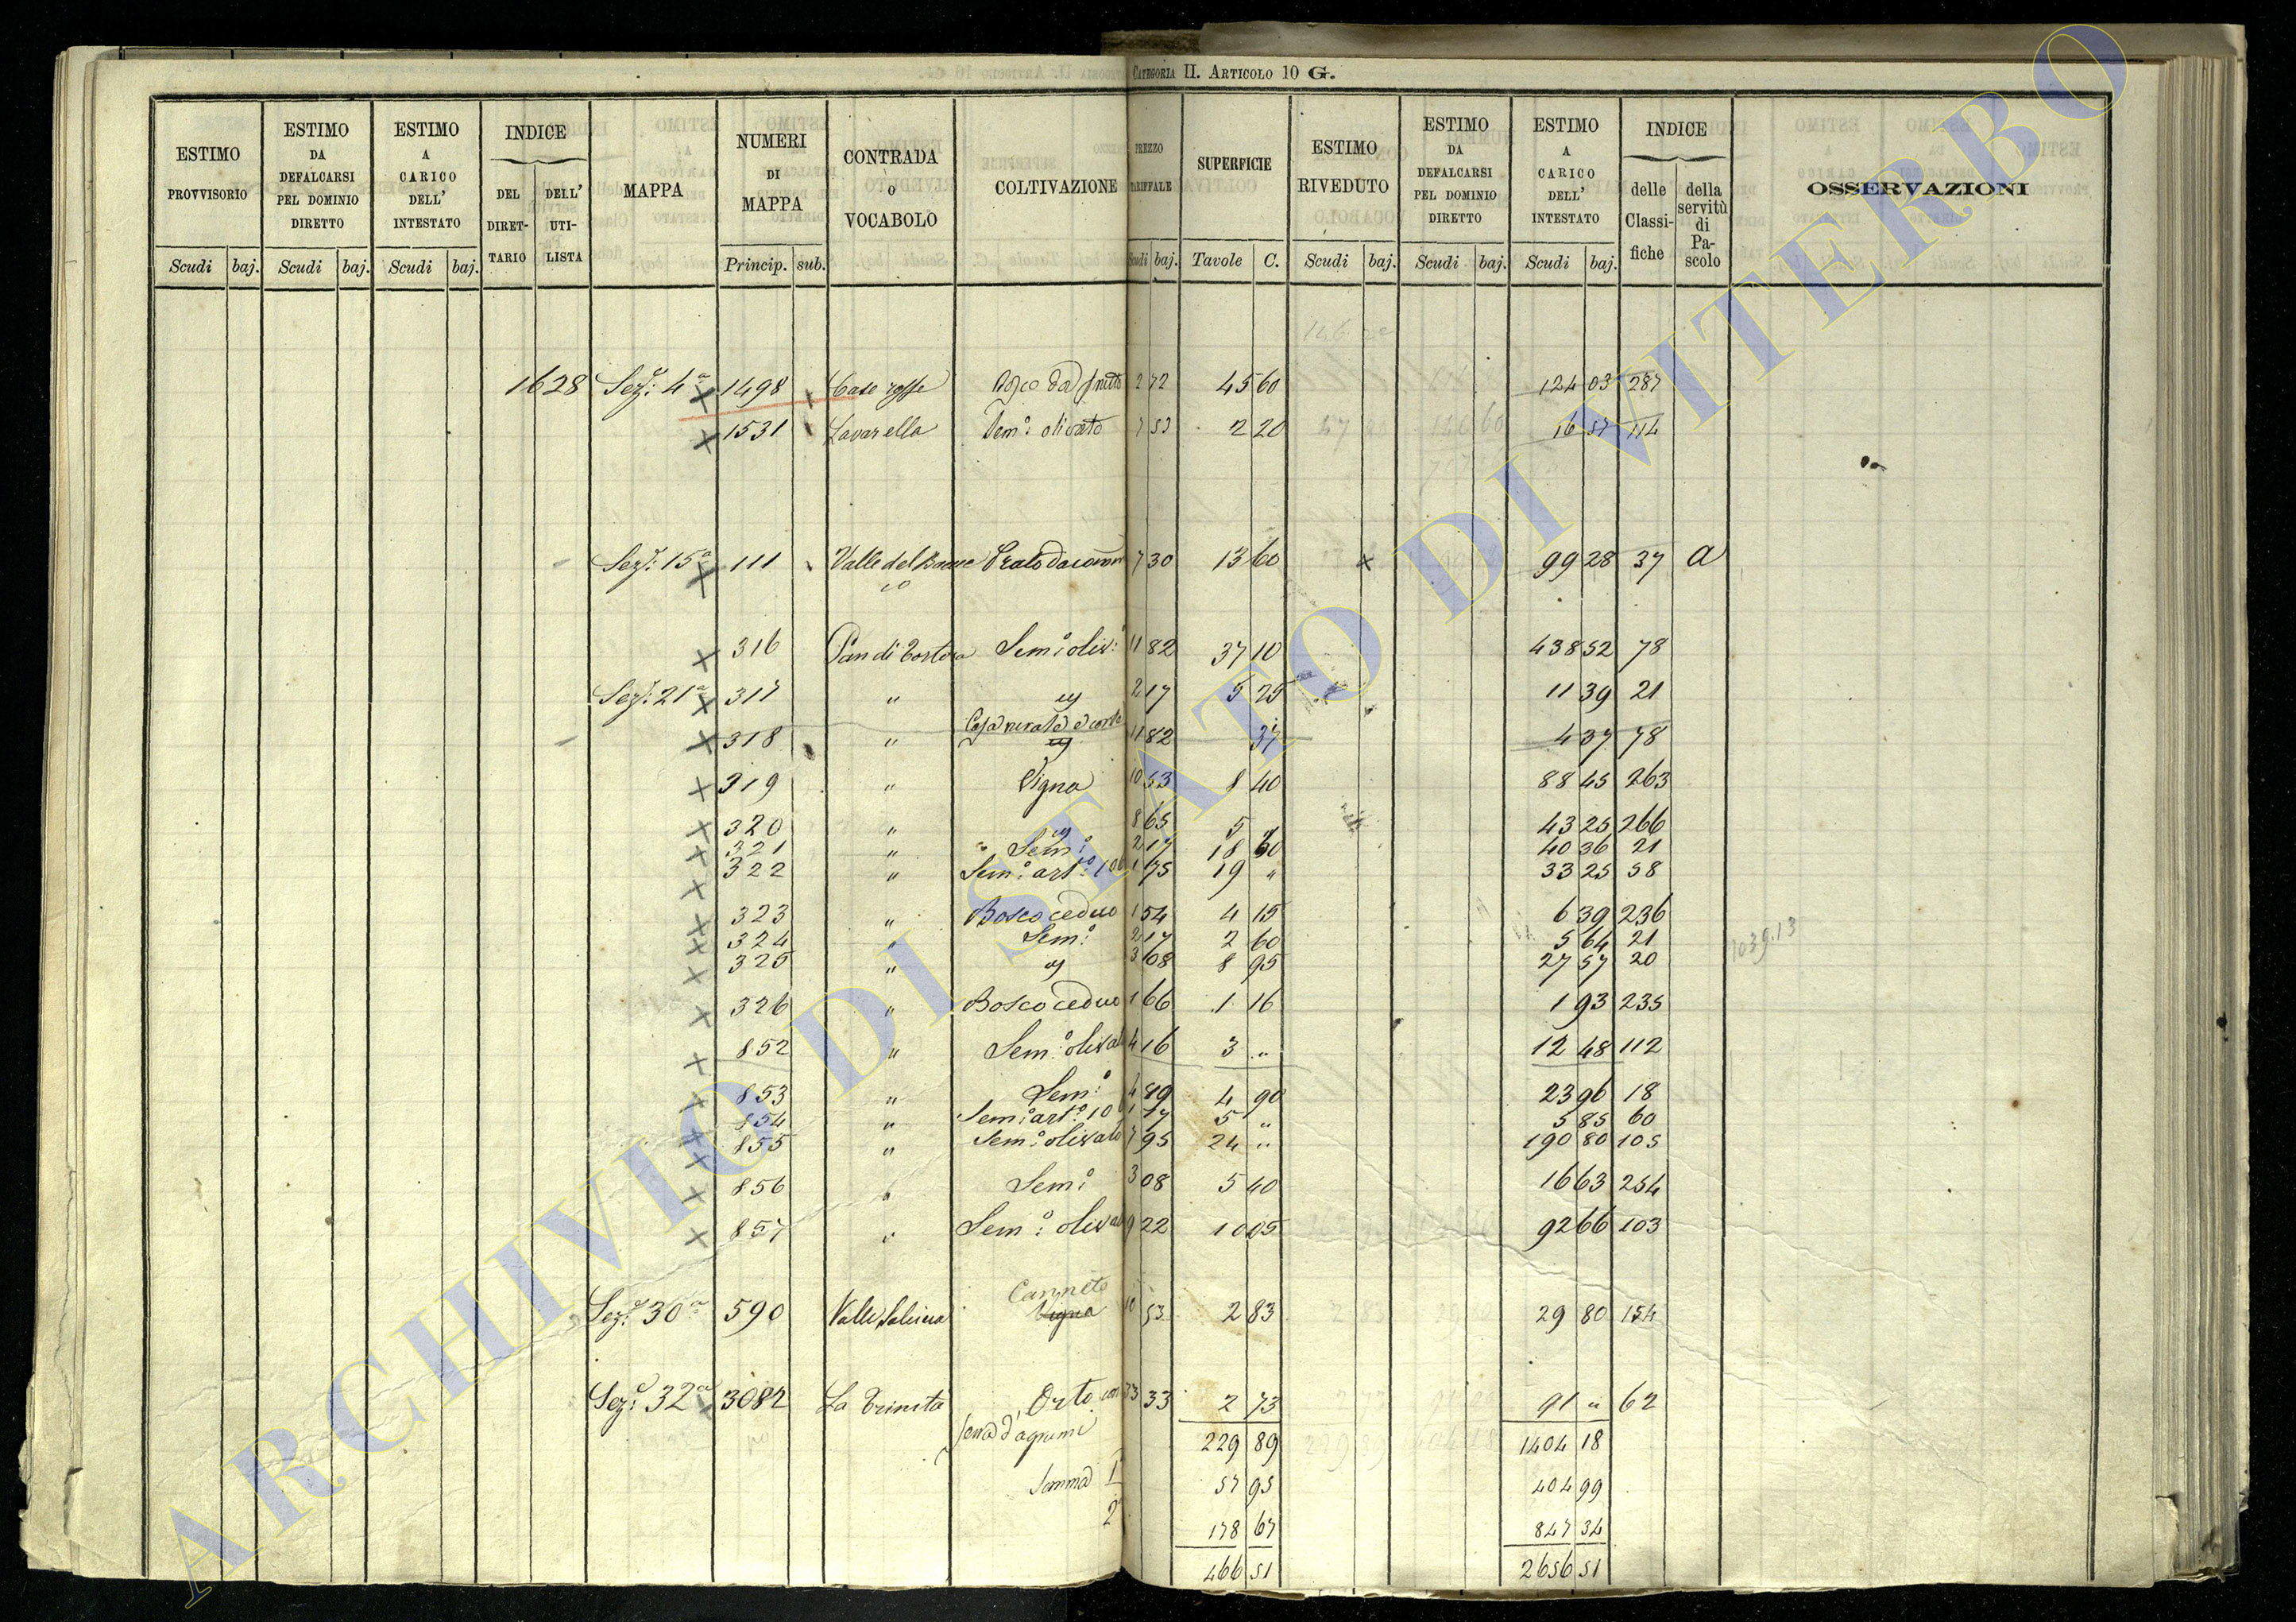 CATEGORIA II. ARTICOLO 10 G.
ESTIMO PROVVISORIO | ESTIMO DA DEFALCARSI PEL DOMINIO DIRETTO | ESTIMO A CARICO DELL' INTESTATO | INDICE DEL DIRETTARIO | DELL' UTILISTA | MAPPA | NUMERI DI MAPPA | CONTRADA O VOCABOLO | COLTIVAZIONE | PREZZO TARIFFALE | SUPERFICIE | ESTIMO RIVEDUTO | ESTIMO DA DEFALCARSI PEL DOMINIO DIRETTO | ESTIMO A CARICO DELL' INTESTATO | INDICE delle Classifiche | della servitù di Pascolo | OSSERVAZIONI
Scudi baj. Scudi baj. Scudi baj. Princip. sub. Scudi baj. Tavole C. Scudi baj. Scudi baj. Scudi baj.
1628 Sez.e 4a 1498 Case rosse da frutto 2 72 45 60 124 03 287
1531 Lavarella Sem.o olivato 7 53 2 20 16 57 114
Sez.e 15a 111 Valle del Prato da 7 30 13 60 99 28 37 a
316 Pan di Tortora Sem.o oliv.o 11 82 37 10 438 52 78
Sez.e 21a 317 " 2 17 5 25 11 39 21
318 " Casa rurale e corte 11 82 37 4 37 78
319 " Vigna 10 53 8 40 88 45 263
320 " 8 65 5 43 25 266
321 " Sem.o 2 17 18 60 40 36 21
322 " Sem.o art.o 10 1 75 19 " 33 25 58
323 " Bosco ceduo 1 54 4 15 6 39 236
324 " Sem.o 2 17 2 60 5 64 21
325 " 3 08 8 95 27 57 20
1039.13
326 " Bosco ceduo 1 66 1 16 1 93 235
852 " Sem.o olivato 4 16 3 " 12 48 112
853 " Sem.o 4 89 4 90 23 96 18
854 " Sem.o art.o 10 1 17 5 " 5 85 60
855 " Sem.o olivato 7 95 24 " 190 80 105
856 " Sem.o 3 08 5 40 16 63 254
857 " Sem.o olivato 9 22 10 05 92 66 103
Canneto
Sez.e 30a 590 Valle Vigna 10 53 2 83 29 80 154
Sez.e 32a 3082 La Trinita Orto con 33 33 2 73 91 " 62
d'agrumi 229 89 1404 18
Somma 1 57 95 404 99
2 178 67 847 34
466 51 2656 51
ARCHIVIO DI STATO DI VITERBO